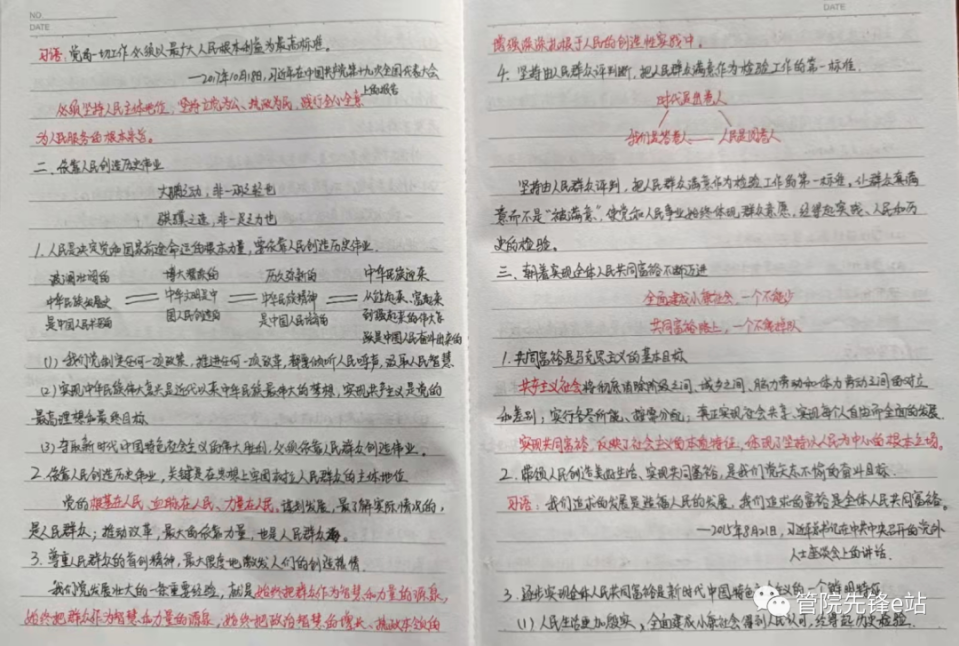 NO.
DATE
习语:党的一切工作必须以最广大人民根本利益为最高标准。
——2017年10月18日,习近平在中国共产党第十九次全国代表大会
上的报告
必须坚持人民主体地位,坚持立党为公、执政为民,践行全心全意
为人民服务的根本宗旨。
二、依靠人民创造历史伟业
大鹏之动,非一羽之轻也
骐骥之速,非一足之力也
1.人民是决定党和国家前途命运的根本力量,要依靠人民创造历史伟业。
波澜壮阔的 博大精深的 历久弥新的 中华民族迎来
中华民族发展史 中华文明是中 中华民族精神 从站起来、富起来
是中国人民书写的 国人民创造的 是中国人民培育的 到强起来的伟大飞
跃是中国人民奋斗出来的
(1)我们党制定任何一项政策,推进任何一项改革,都要倾听人民呼声,汲取人民智慧
(2)实现中华民族伟大复兴是近代以来中华民族最伟大的梦想,实现共产主义是党的
最高理想和最终目标
(3)夺取新时代中国特色社会主义的伟大胜利,必须依靠人民群众创造伟业。
2.依靠人民创造历史伟业,关键是在思想上牢固树立人民群众的主体地位
党的根基在人民、血脉在人民、力量在人民。谋划发展,最了解实际情况的,
是人民群众;推动改革,最大的依靠力量,也是人民群众。
3.尊重人民群众的首创精神,最大限度地激发人们的创造热情
我们党发展壮大的一条重要经验,就是始终把群众作为智慧和力量的源泉,
始终把群众作为智慧和力量的源泉,始终把政治智慧的增长、执政本领的
DATE
增强深深扎根于人民的创造性实践中。
4.坚持由人民群众评判断,把人民群众满意作为检验工作的第一标准
时代是出卷人
我们是答卷人 —— 人民是阅卷人
坚持由人民群众评判,把人民群众满意作为检验工作的第一标准。让群众真满
意而不是“被满意”,使党和人民事业始终体现群众意愿,经得起实践、人民和历
史的检验。
三、朝着实现全体人民共同富裕不断迈进
全面建成小康社会,一个不能少
共同富裕路上,一个不能掉队
1.共同富裕是马克思主义的基本目标
共产主义社会将彻底消除阶级之间、城乡之间、脑力劳动和体力劳动之间的对立
和差别;实行各尽所能、按需分配;真正实现社会共享、实现每个人自由而全面的发展
实现共同富裕,反映了社会主义的本质特征,体现了坚持以人民为中心的根本立场。
2.带领人民创造美好生活、实现共同富裕,是我们党矢志不渝的奋斗目标
习语:我们追求的发展是造福人民的发展,我们追求的富裕是全体人民共同富裕。
——2015年8月21日,习近平总书记在中共中央召开的党外
人士座谈会上的讲话
3.逐步实现全体人民共同富裕是新时代中国特色 义的一个鲜明特征
(1)人民生活更加殷实,全面建成小康社会得到人民认可,经得起历史检验
管院先锋e站